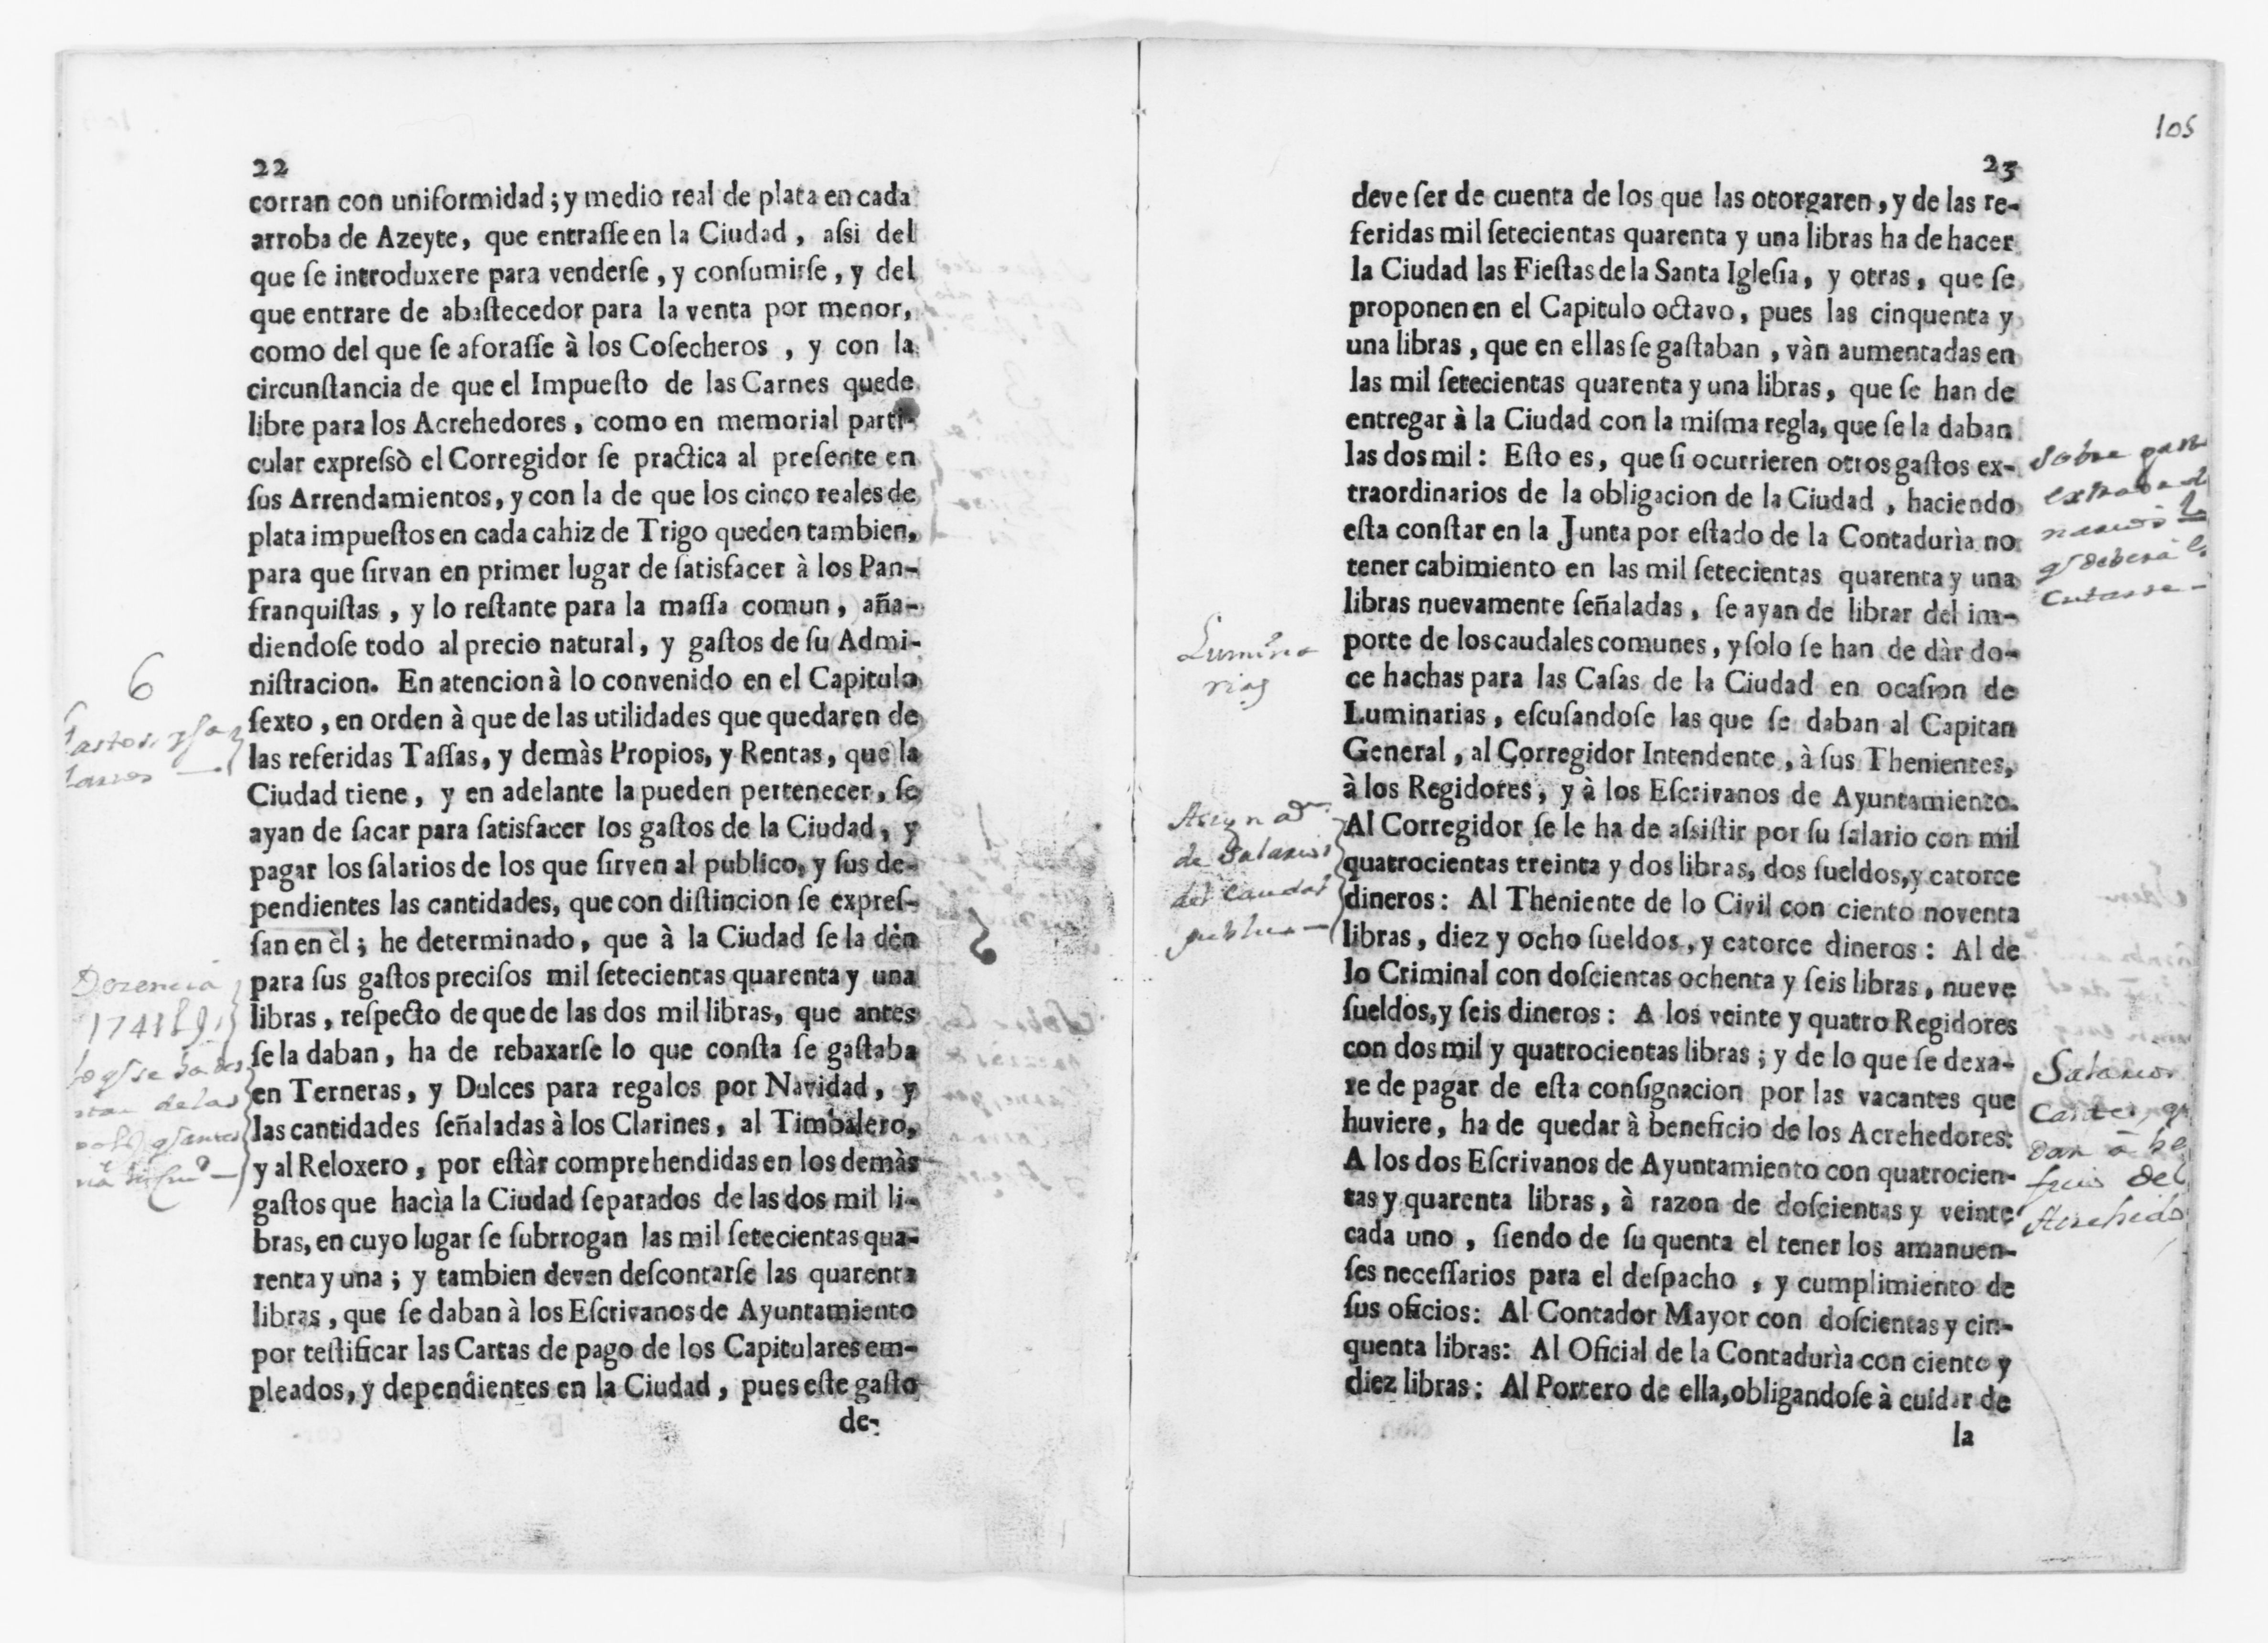 22
corran con uniformidad; y medio real de plata en cada
arroba de Azeyte, que entraſſe en la Ciudad, aſsi del
que ſe introduxere para venderſe, y conſumirſe, y del
que entrare de abaſtecedor para la venta por menor,
como del que ſe aforaſſe à los Coſecheros, y con la
circunſtancia de que el Impueſto de las Carnes quede
libre para los Acrehedores, como en memorial parti-
cular expreſsò el Corregidor ſe practica al preſente en
ſus Arrendamientos, y con la de que los cinco reales de
plata impueſtos en cada cahiz de Trigo queden tambien,
para que ſirvan en primer lugar de ſatisfacer à los Pan-
franquiſtas, y lo reſtante para la maſſa comun, aña-
diendoſe todo al precio natural, y gaſtos de ſu Admi-
niſtracion. En atencion à lo convenido en el Capitulo
ſexto, en orden à que de las utilidades que quedaren de
las referidas Taſſas, y demàs Propios, y Rentas, que la
Ciudad tiene, y en adelante la pueden pertenecer, ſe
ayan de ſacar para ſatisfacer los gaſtos de la Ciudad, y
pagar los ſalarios de los que ſirven al publico, y ſus de-
pendientes las cantidades, que con diſtincion ſe expreſ-
ſan en èl; he determinado, que à la Ciudad ſe la dèn
para ſus gaſtos preciſos mil ſetecientas quarenta y una
libras, reſpecto de que de las dos mil libras, que antes
ſe la daban, ha de rebaxarſe lo que conſta ſe gaſtaba
en Terneras, y Dulces para regalos por Navidad, y
las cantidades ſeñaladas à los Clarines, al Timbalero,
y al Reloxero, por eſtàr comprehendidas en los demàs
gaſtos que hacìa la Ciudad ſeparados de las dos mil li-
bras, en cuyo lugar ſe ſubrrogan las mil ſetecientas qua-
renta y una; y tambien deven deſcontarſe las quarenta
libras, que ſe daban à los Eſcrivanos de Ayuntamiento
por teſtificar las Cartas de pago de los Capitulares em-
pleados, y dependientes en la Ciudad, pues eſte gaſto
de-
6
1741
105
23
deve ſer de cuenta de los que las otorgaren, y de las re-
feridas mil ſetecientas quarenta y una libras ha de hacer
la Ciudad las Fieſtas de la Santa Igleſia, y otras, que ſe
proponen en el Capitulo octavo, pues las cinquenta y
una libras, que en ellas ſe gaſtaban, vàn aumentadas en
las mil ſetecientas quarenta y una libras, que ſe han de
entregar à la Ciudad con la miſma regla, que ſe la daban
las dos mil: Eſto es, que ſi ocurrieren otros gaſtos ex-
traordinarios de la obligacion de la Ciudad, haciendo
eſta conſtar en la Junta por eſtado de la Contadurìa no
tener cabimiento en las mil ſetecientas quarenta y una
libras nuevamente ſeñaladas, ſe ayan de librar del im-
porte de los caudales comunes, y ſolo ſe han de dàr do-
ce hachas para las Caſas de la Ciudad en ocaſion de
Luminarias, eſcuſandoſe las que ſe daban al Capitan
General, al Corregidor Intendente, à ſus Thenientes,
à los Regidores, y à los Eſcrivanos de Ayuntamiento.
Al Corregidor ſe le ha de aſsiſtir por ſu ſalario con mil
quatrocientas treinta y dos libras, dos ſueldos, y catorce
dineros: Al Theniente de lo Civil con ciento noventa
libras, diez y ocho ſueldos, y catorce dineros: Al de
lo Criminal con doſcientas ochenta y ſeis libras, nueve
ſueldos, y ſeis dineros: A los veinte y quatro Regidores
con dos mil y quatrocientas libras; y de lo que ſe dexa-
re de pagar de eſta conſignacion por las vacantes que
huviere, ha de quedar à beneficio de los Acrehedores:
A los dos Eſcrivanos de Ayuntamiento con quatrocien-
tas y quarenta libras, à razon de doſcientas y veinte
cada uno, ſiendo de ſu quenta el tener los amanuen-
ſes neceſſarios para el deſpacho, y cumplimiento de
ſus oficios: Al Contador Mayor con doſcientas y cin-
quenta libras: Al Oficial de la Contadurìa con ciento y
diez libras: Al Portero de ella, obligandoſe à cuidar de
la
Lumina
rias
de Salarios
del Caudal
publico
Sobre
Salarios